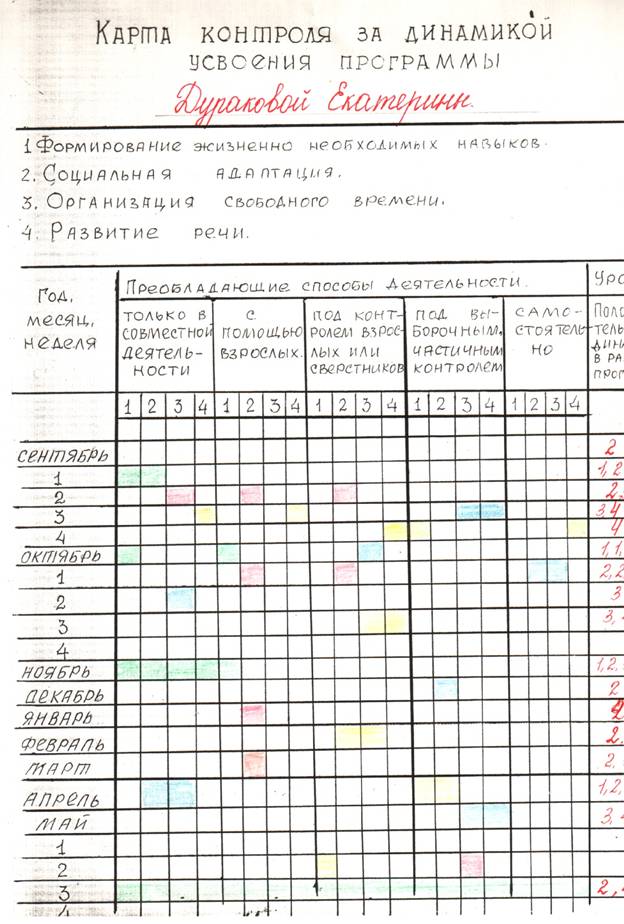 КАРТА КОНТРОЛЯ ЗА ДИНАМИКОЙ
УСВОЕНИЯ ПРОГРАММЫ
Дураковой Екатерины.
1 ФОРМИРОВАНИЕ ЖИЗНЕННО НЕОБХОДИМЫХ НАВЫКОВ.
2. СОЦИАЛЬНАЯ АДАПТАЦИЯ.
3. ОРГАНИЗАЦИЯ СВОБОДНОГО ВРЕМЕНИ.
4. РАЗВИТИЕ РЕЧИ.
ГОД,
МЕСЯЦ,
НЕДЕЛЯ
ПРЕОБЛАДАЮЩИЕ СПОСОБЫ ДЕЯТЕЛЬНОСТИ.
ТОЛЬКО В
СОВМЕСТНОЙ
ДЕЯТЕЛЬ-
НОСТИ
С
ПОМОЩЬЮ
ВЗРОСЛЫХ.
ПОД КОНТ-
РОЛЕМ ВЗРОС-
ЛЫХ ИЛИ
СВЕРСТНИКОВ
ПОД ВЫ-
БОРОЧНЫМ,
ЧАСТИЧНЫМ
КОНТРОЛЕМ
САМО-
СТОЯТЕЛЬ-
НО
УРО
ПОЛО
ТЕЛЬ
ДИНА
В РА
ПРОГ
1 2 3 4 1 2 3 4 1 2 3 4 1 2 3 4 1 2 3 4
СЕНТЯБРЬ 2
1 1,2
2 2
3 3,4
4 4
ОКТЯБРЬ 1,1,
1 2,2
2 3
3 3,
4
НОЯБРЬ 1,2,
ДЕКАБРЬ 2
ЯНВАРЬ 2
ФЕВРАЛЬ 2.
МАРТ 2,
АПРЕЛЬ 1,2,
МАЙ 3,
1
2
3 2,
4